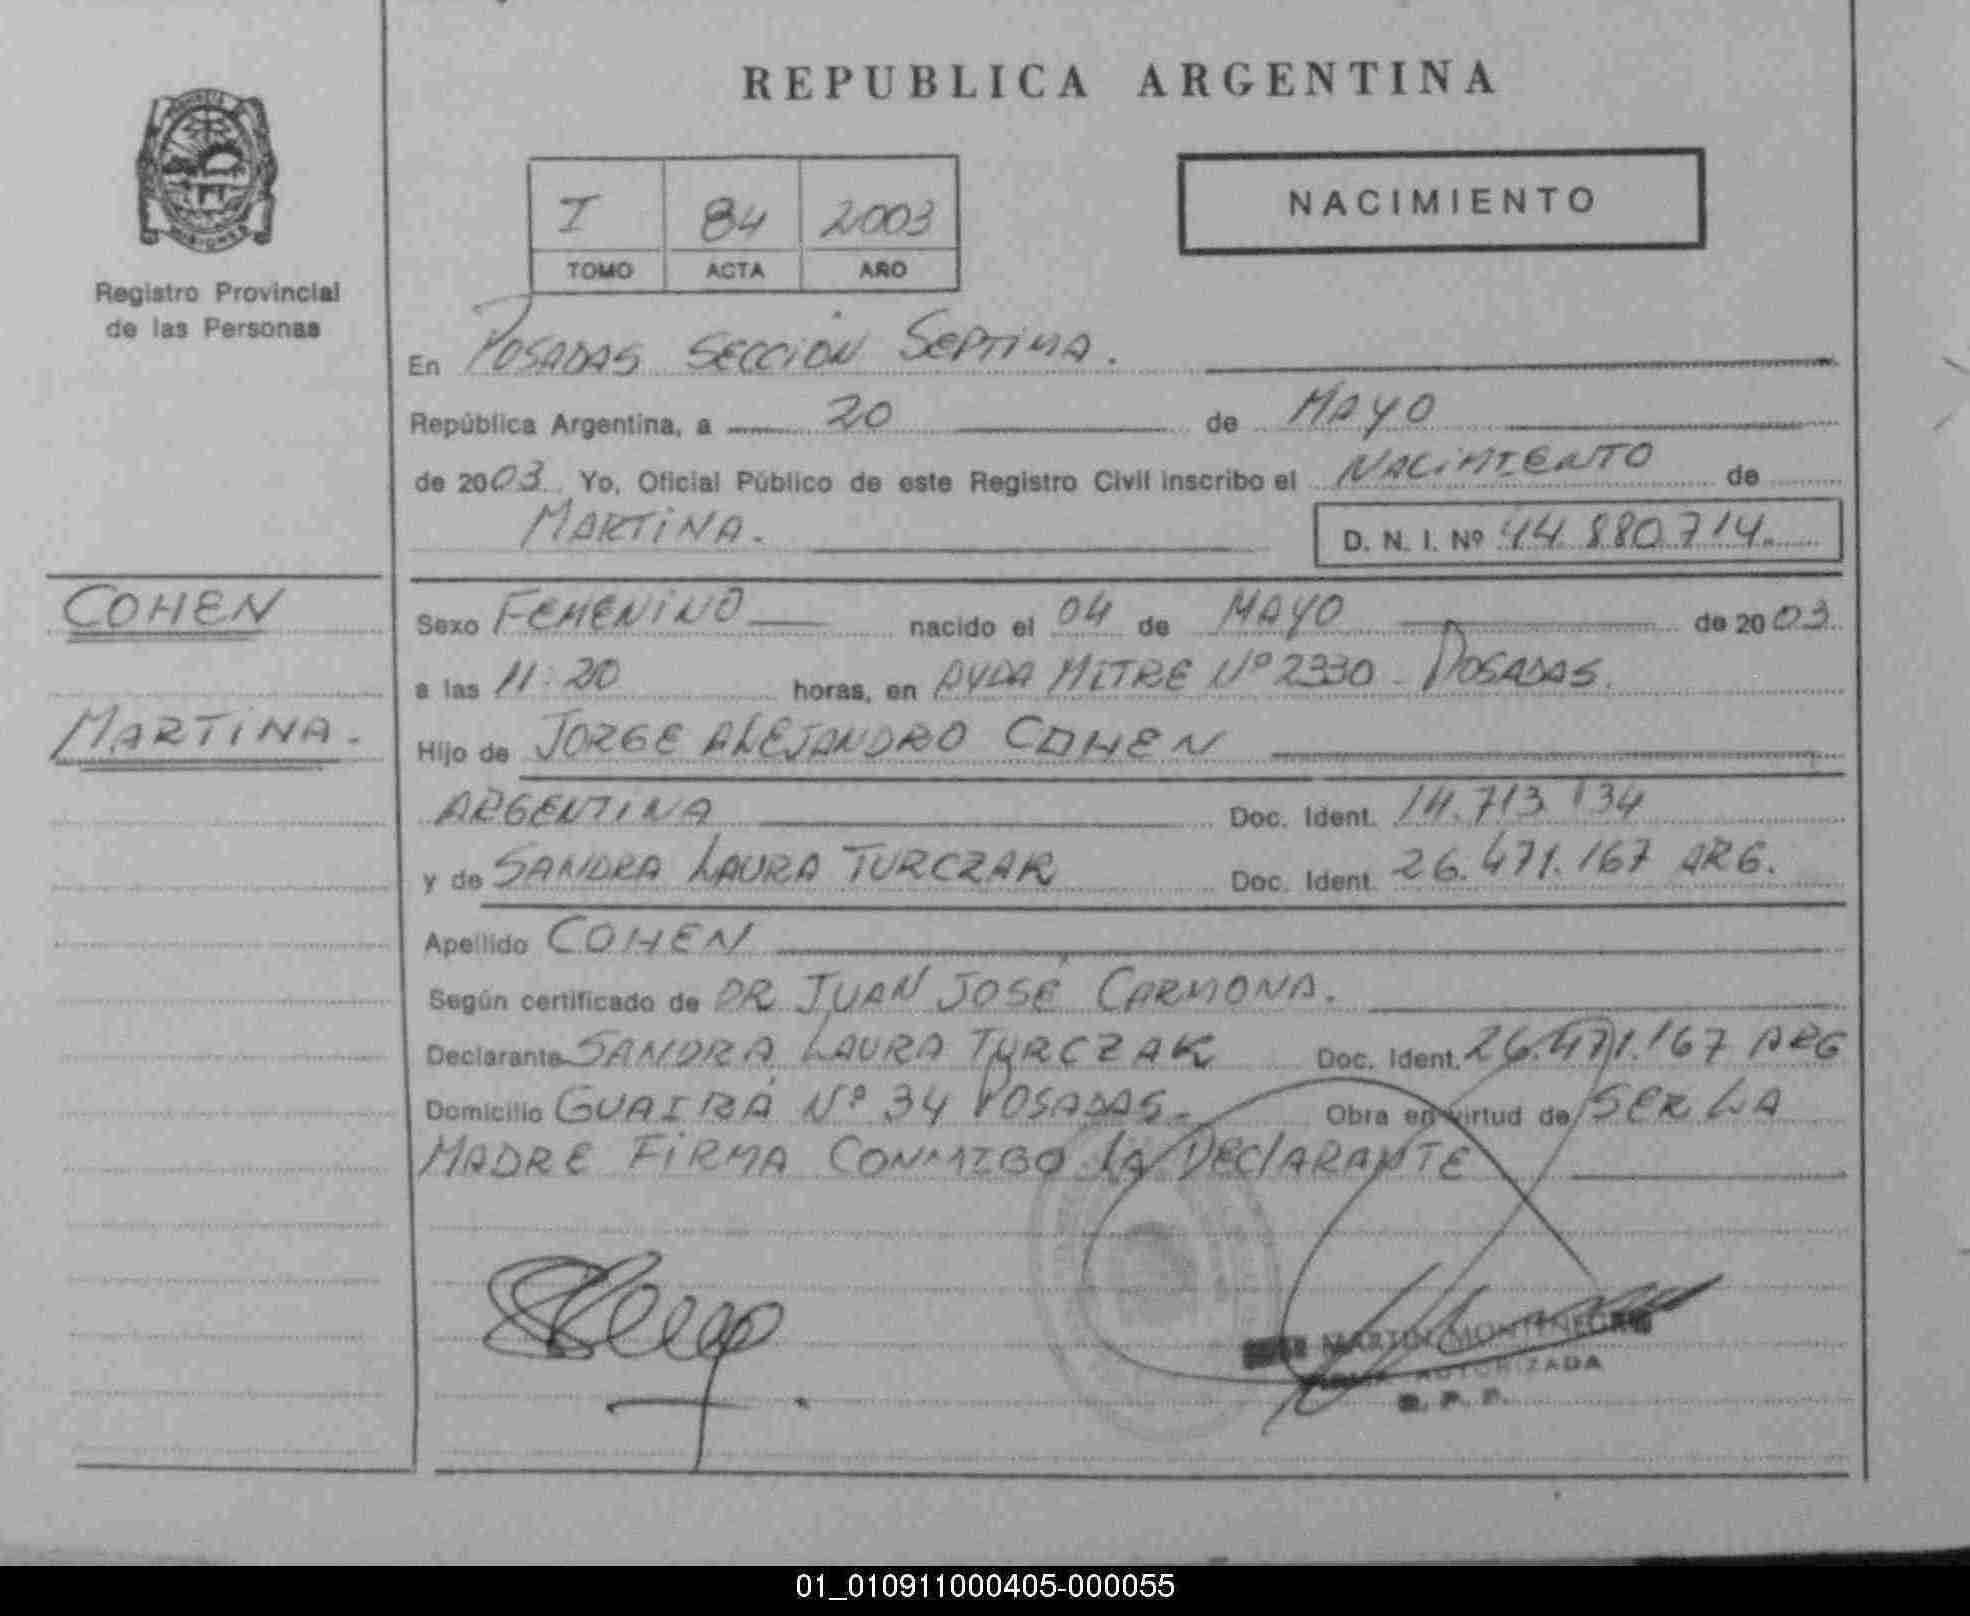 REPUBLICA ARGENTINA
NACIMIENTO
I 84 2003
TOMO ACTA AÑO
MISIONES
Registro Provincial
de las Personas
En POSADAS SECCION SEPTIMA.
República Argentina, a 20 de MAYO
de 2003 Yo, Oficial Público de este Registro Civil inscribo el NACIMIENTO de
MARTINA. D. N. I. Nº 44.880.714.
COHEN
MARTINA.
Sexo FEMENINO nacido el 04 de MAYO de 2003
a las 11:20 horas, en AVDA MITRE Nº 2330 - POSADAS.
Hijo de JORGE ALEJANDRO COHEN
ARGENTINA Doc. Ident. 14.713.134
y de SANDRA LAURA TURCZAK Doc. Ident. 26.471.167 ARG.
Apellido COHEN
Según certificado de DR JUAN JOSÉ CARMONA.
Declarante SANDRA LAURA TURCZAK Doc. Ident. 26.471.167 ARG
Domicilio GUAIRÁ Nº 34 POSADAS. Obra en virtud de SER LA
MADRE FIRMA CONMIGO LA DECLARANTE
MARTIN MONTENEGRO
AUTORIZADA
R. P. P.
01_010911000405-000055